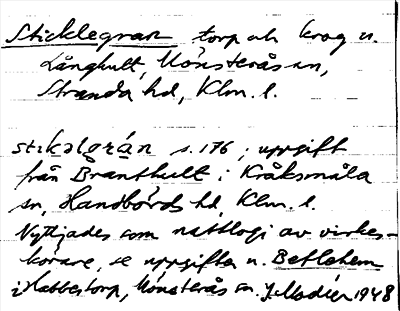 Sticklegran torp och krog u.
Långhult, Mönsterås sn,
Stranda hd, Klm. l.
stikəlgrán s. 176; uppgift
från Branthult i Kråksmåla
sn, Handbörds hd, Klm. l.
Nyttjades som nattlogi av virkes-
körare, se uppgiften u. Betlehem
i Habbestorp, Mönsterås sn. J. Modéer 1948